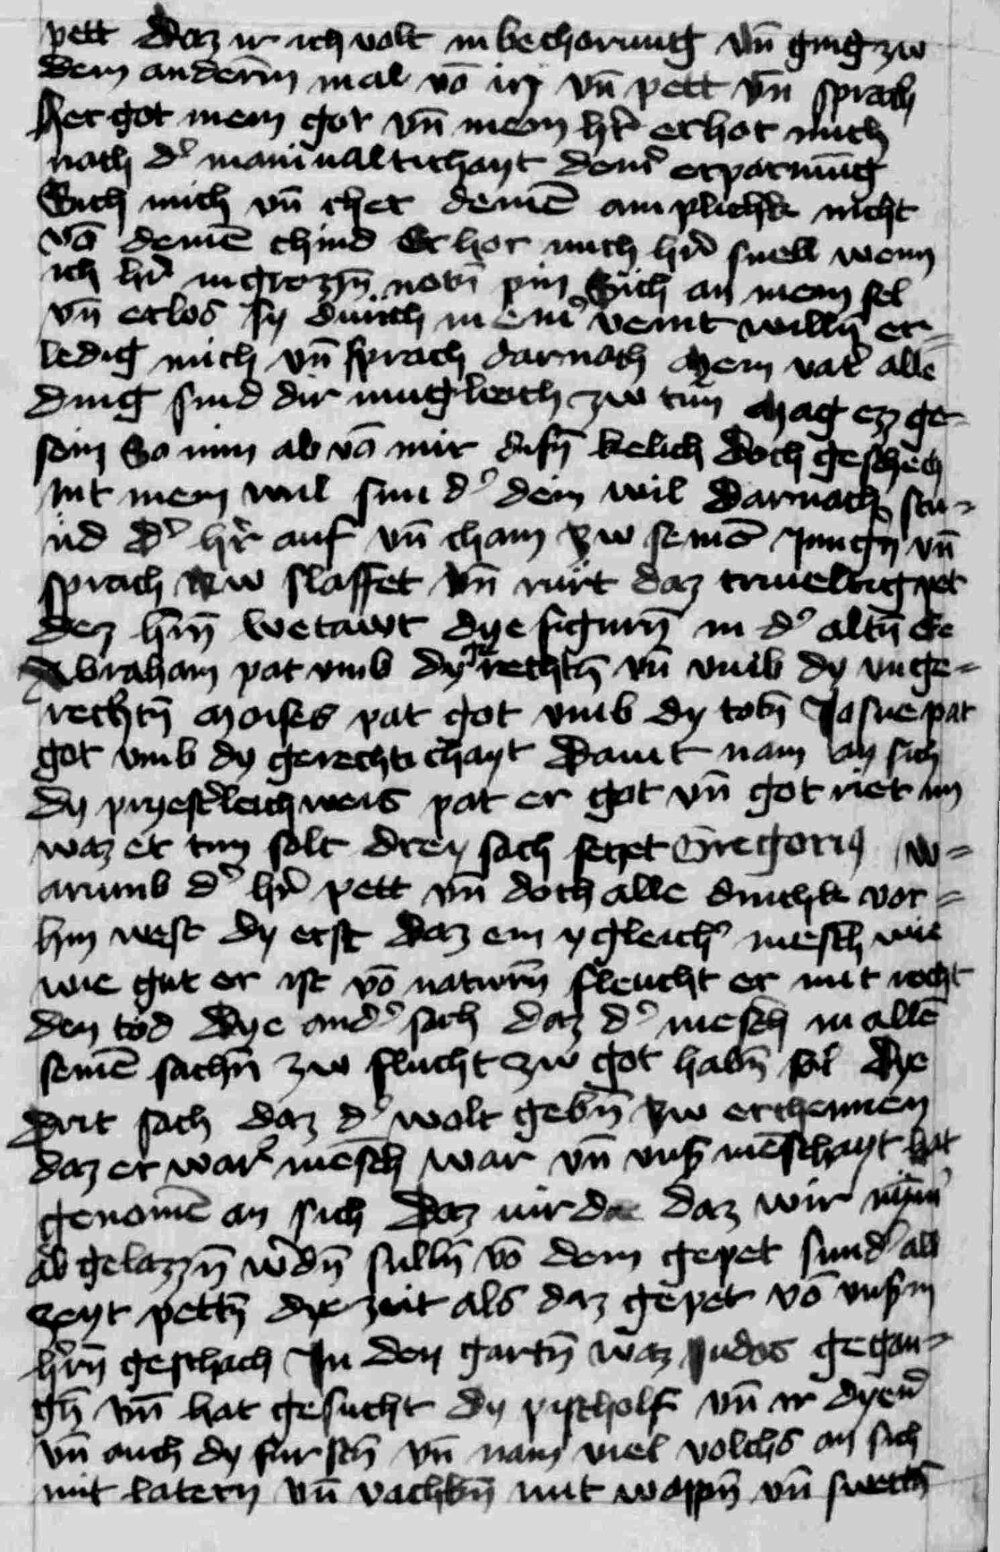 pett daz ir ich valt in bechorung vn̄ ging zw
dem andern̄ mal vō in vn̄ pett vn̄ sprach
Her got mein got vn̄ mein h̄r erhor mich
nach d' manivaltichayt deinr̄ erparmūg
Sich mich vn̄ cher deinē amplickh nicht
vō deinē chind Erhor mich h̄r snell wenn
ich h̄r in grozn̄ notn̄ pin Sich an mein sel
vn̄ erlos sy durich meinr̄ veint willn̄ er=
ledig mich vn̄ sprach darnach Mein vat' alle
ding sind dir mugleich zw tun Mag ez ge=
sein So nim ab vō mir disn̄ kelich doch geschech
nit mein wil sun d' dein wil Darnach stu=
nd d' h̄r auf vn̄ cham zw seinē Jungn̄ vn̄
sprach Nw slaffet vn̄ rürt daz triveltig pet
dez h̄rn̄ betawt dye figurn̄ in d' altn̄ Ee
Abraham pat vmb dy gerechtn̄ vn̄ vmb dy vnge=
rechtn̄ Moises pat got vmb dy tobn̄ Josue pat
got vmb dy gerechtichayt Dauit nam an sich
dy priest'leich weis pat er got vn̄ got riet im
waz er tun solt drey sach seczet Gregorig w=
arumb d' h̄r pett vn̄ doch alle dinckh vor=
hin west dy erst daz ein ygleich' mēsch wie
wie gut er ist vō naturn̄ fleucht er nit recht
den tod Dye and' sach daz d' mēsch in allē
seinē sachn̄ zw flucht zw got habn̄ sol Dye
drit sach daz d' wolt gebn̄ zw erchennen
daz er war' mēsch war vn̄ vns' mēschayt hat
genomē an sich Daz mir da daz wir nym̄
ab gelazzn̄ w'dn̄ sulln̄ vō dem gepet sund' all
zeyt pettn̄ dye zeit als daz gepet vō vnsm̄
h̄rn̄ geschach In den gartn̄ waz Judas gegan=
gn̄ vn̄ hat gesucht dy pischolf vn̄ ir dyen'
vn̄ auch dy furstn̄ vn̄ nam viel volchs an sich
mit latern vn̄ vachkn̄ mit wappn̄ vn̄ swertn̄